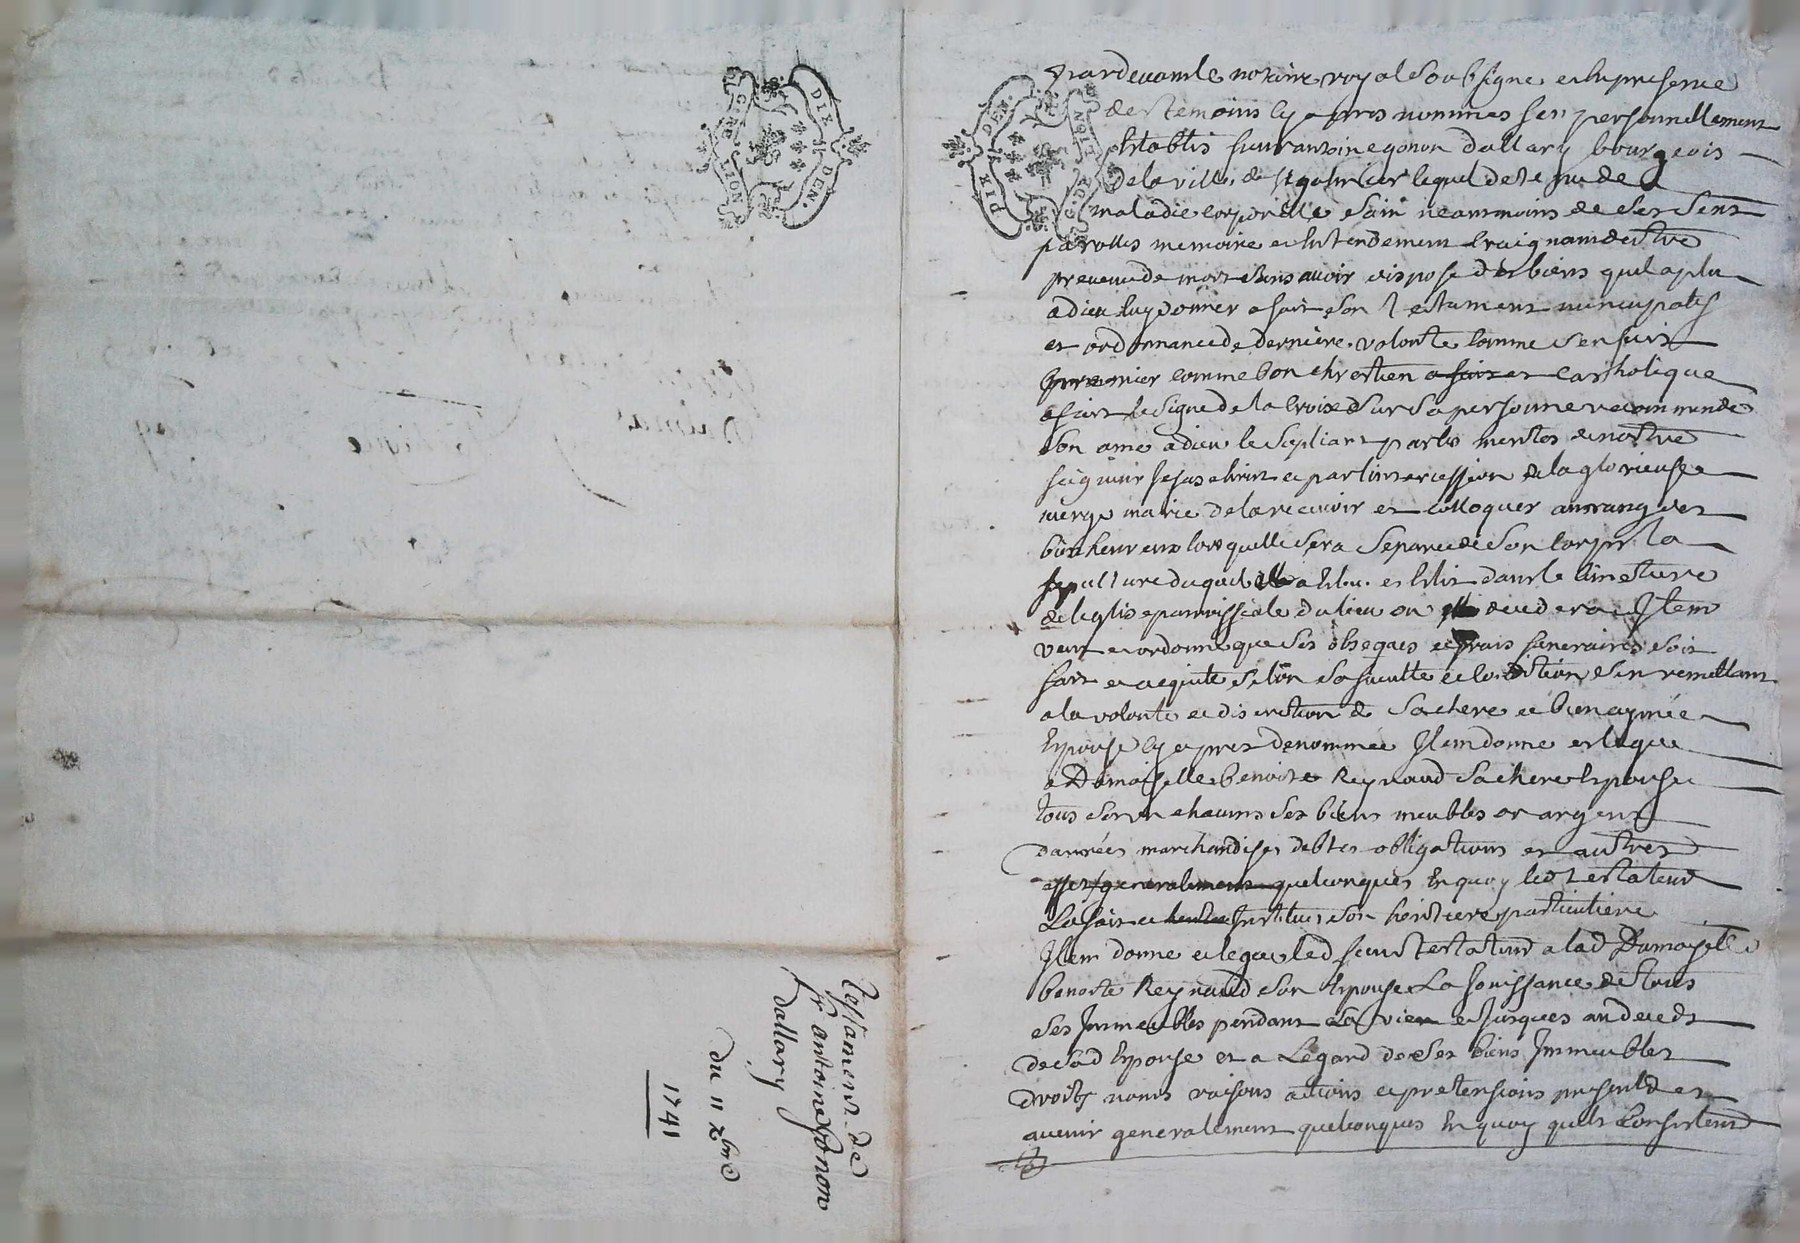 GNE. LION
DIX DEN.
testament de
sr antoine Gonon
dallary
du 11 xbre
1741
DIX DEN.
pardevant le notaire royal soubsigne et en presence
des temoins cy apres nommes fut personnellement
estably sieur antoine gonon dallary bourgeois
de la ville de lequel detenu de
maladie corporelle sain neanmoins de ses sens
parolles memoire et entendement craignant destre
prevenu de mort sans avoir dispose des biens quil a plu
a dieu luy donner a fait son testament nuncupatif
et ordonnance de derniere volonte comme sen suit
premier comme bon chrestien a fait et catholique
a fait le signe de la croix sur sa personne recommande
son ame a dieu le supliant par les merites de nostre
seigneur jesus christ et par lintercession de la glorieuse
vierge marie de la recevoir et colloquer au rang des
bienheureux lors quelle sera separee de son corps la
sepulture duquel a eslu et eslit dans le cimetiere
de leglise parroissiale du lieu ou decedera Item
veut et ordonne que ses obseques et frais funeraires soit
fait et aquite selon sa faculte et condition sen remettant
a la volonte et discretion de sa chere et bien aymée
Espouse cy apres denommee Item donne et legue
a Demoiselle benoite Reynaud sa chere Espouse
tous et un chacuns ses biens meubles or argent
danrées marchandises debtes obligations et autres
effets generalement quelconques En quoy led testateur
La fait et Institue son heritiere particuliere
Item donne et legue led sieur testateur a lad Damoyselle
benoite Reynaud son Espouse La Jouissance de tous
ses Immeubles pendant La vie et Jusques au deceds
de sad Espouse et a Legard de ses biens Immeubles
droits noms raisons actions et pretensions presents et
avenir generalement quelconques En quoy quils Consistent